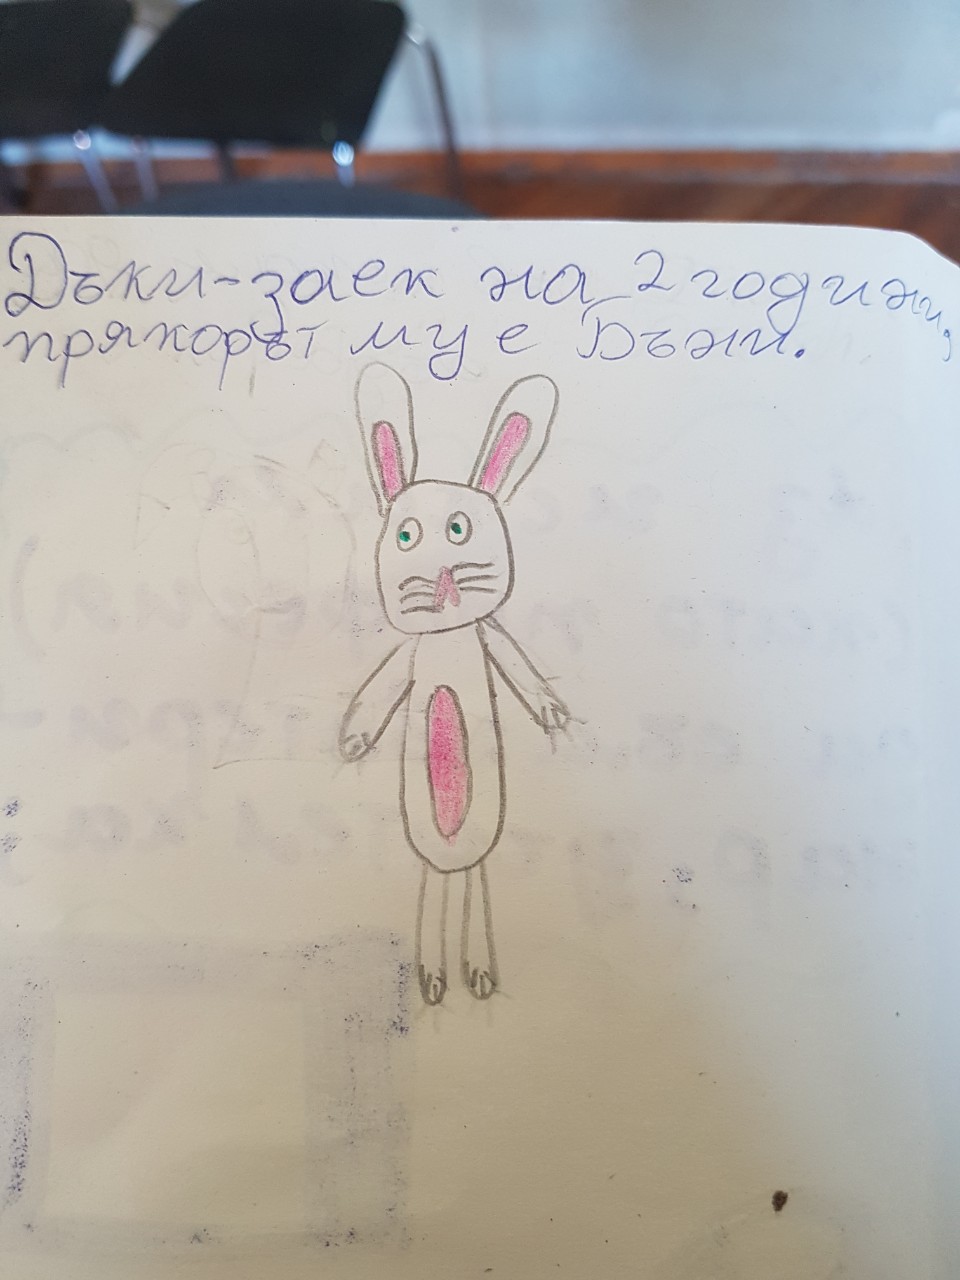 Дъки-заек на 2 години,
прякорът му е Бъни.